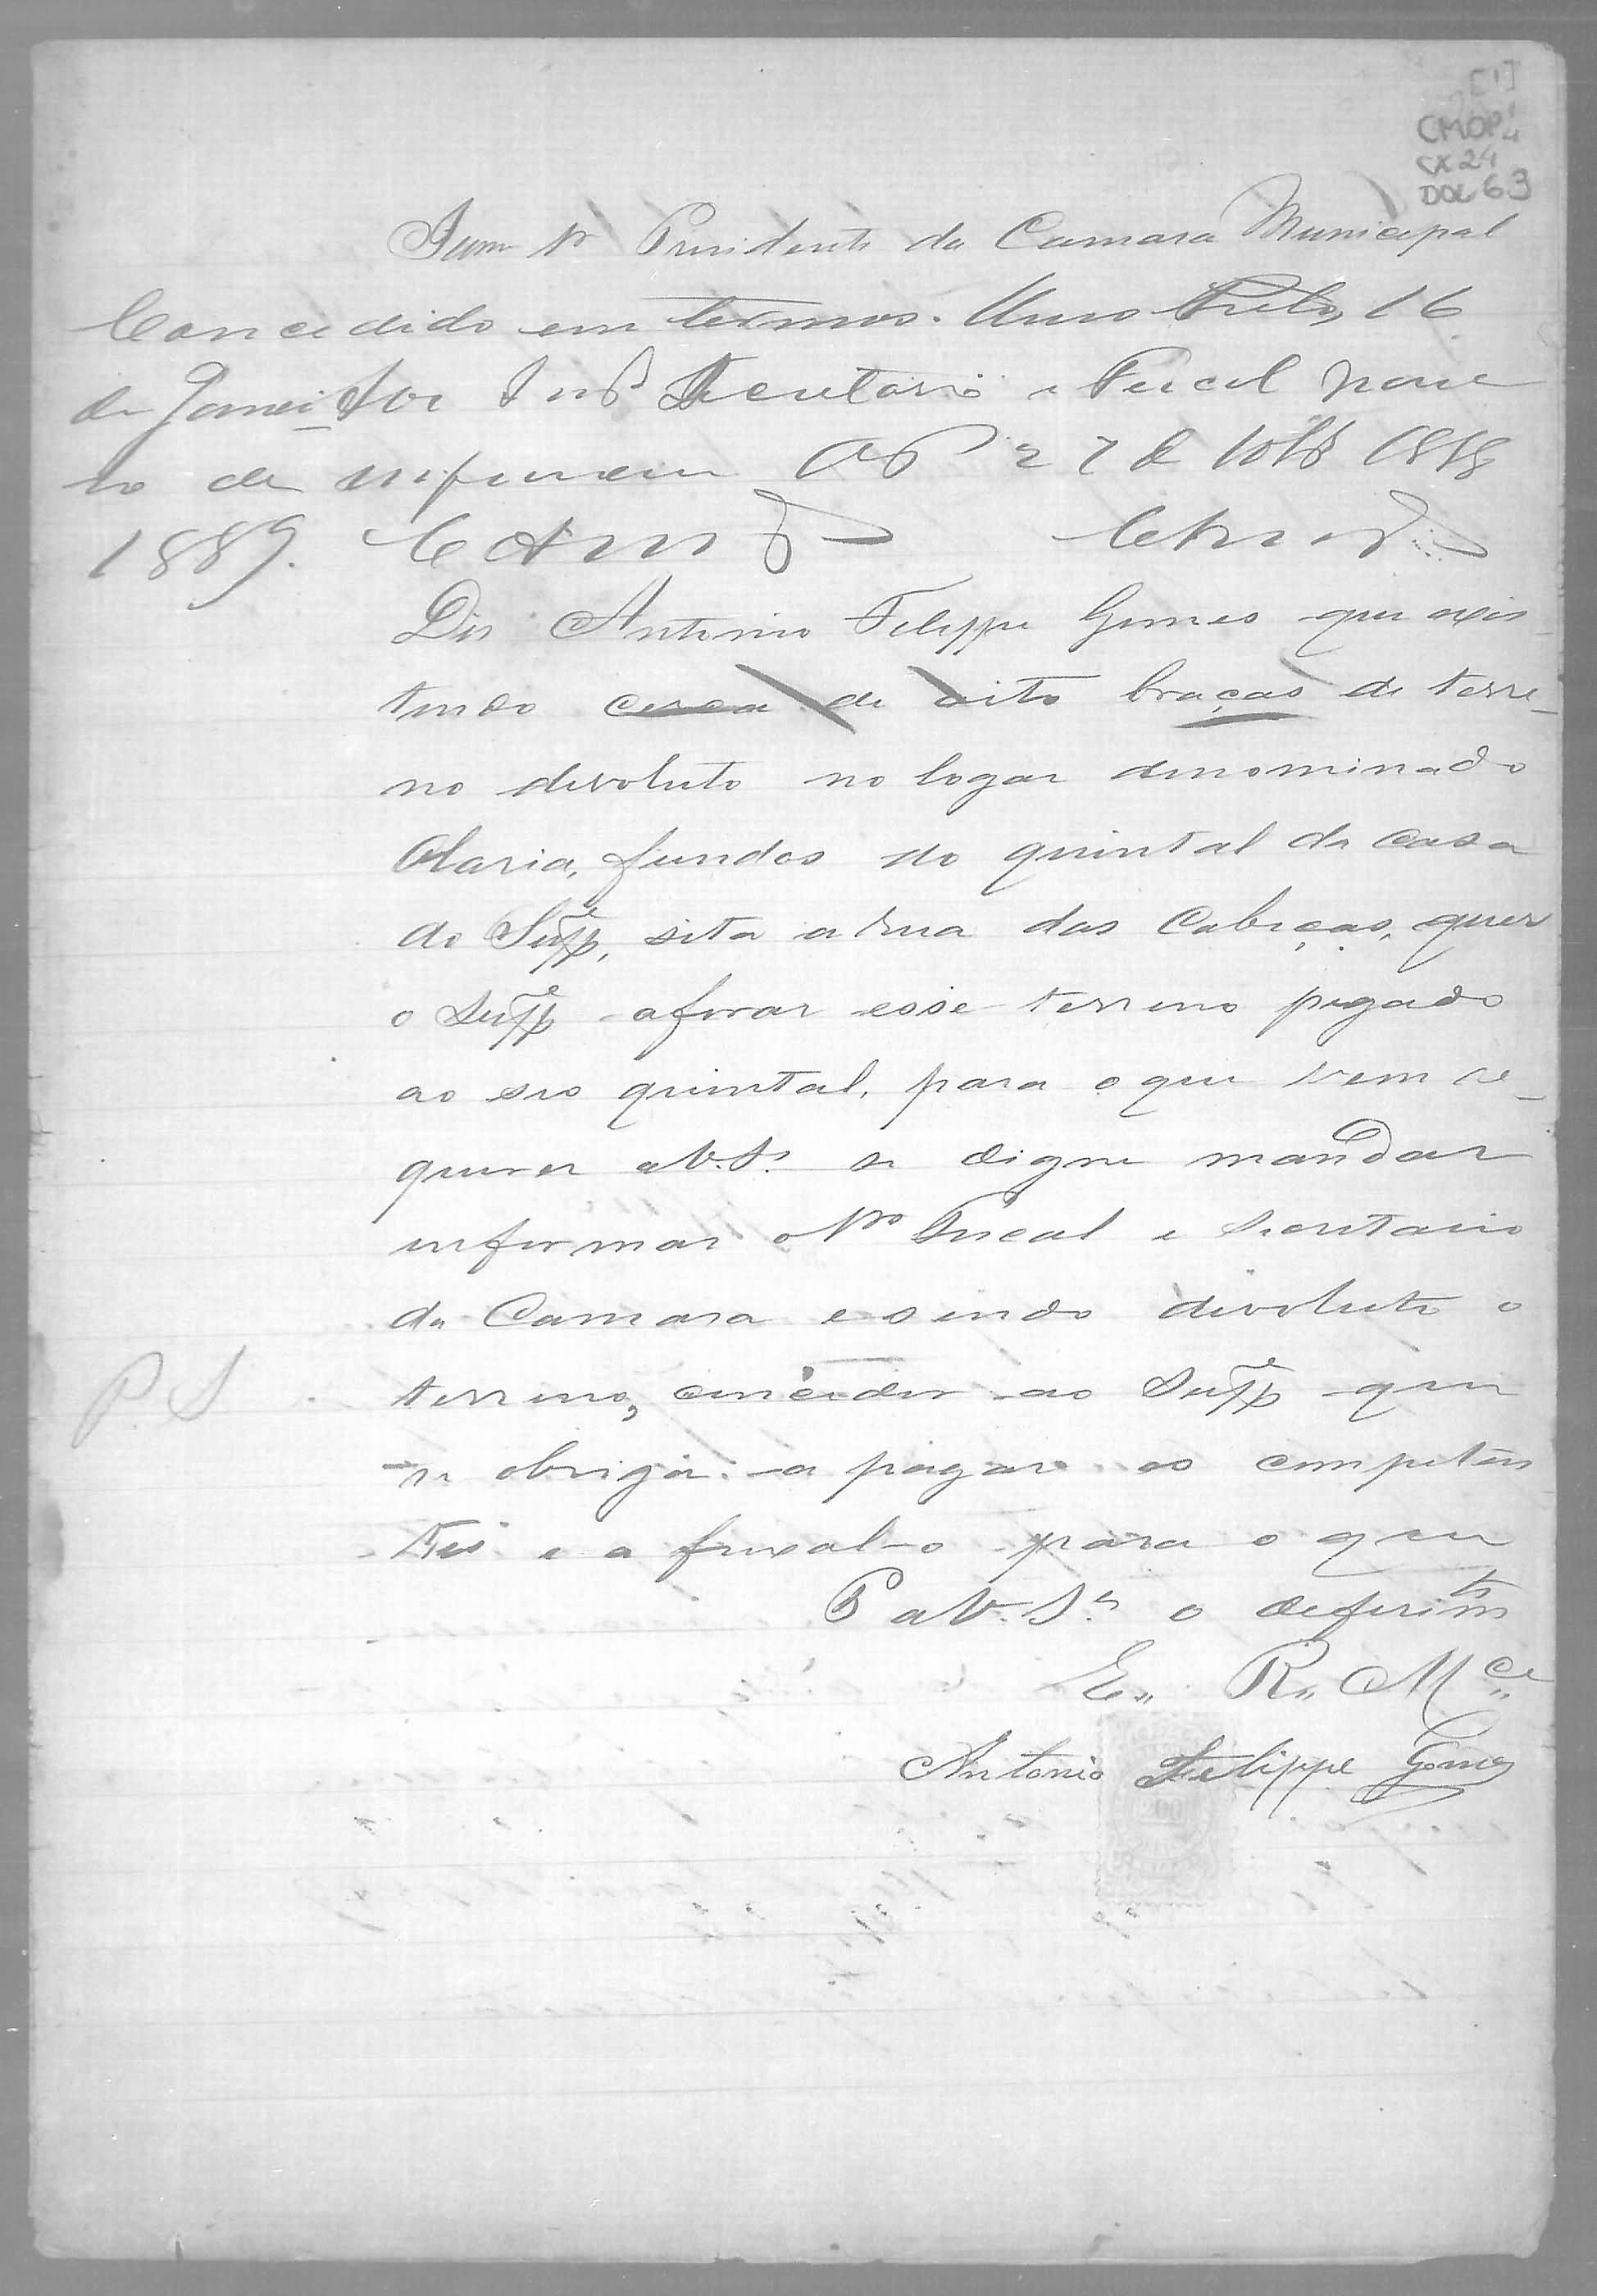 [1]
CMOP
CX 24
DOC 63
Illmo Snr Presidente da Camara Municipal
Concedido em termos. Ouro Preto, 16
de Janei
Secretario e Fiscal para
ro de informarem OP 27 de 10bro 1888
1889.
Diz Antonio Felippe Gomes que exis
tindo cerca de oito braças de terre_
no devoluto no logar denominado
Olaria, fundos do quintal da casa
do Suppe, sita a rua das Cabeças, quer
o Suppe aforar esse terreno pegado
ao seo quintal, para o que vem re_
querer a V. Sa se digne mandar
informar o Snro Fiscal e Secretario
da Camara e sendo devoluto o
terreno, conceder ao Suppe que
P. S
se obriga a pagar os competen
tes e a fexal-o para o que
P a V. Sa o deferimto
E,, R,, Mce,,
Antonio Felippe Gomes
200